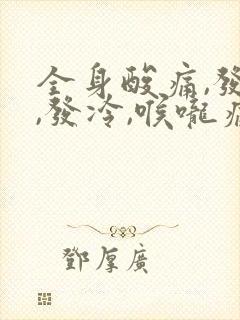 全身酸痛,發
,發冷,喉嚨
鄧厚廣